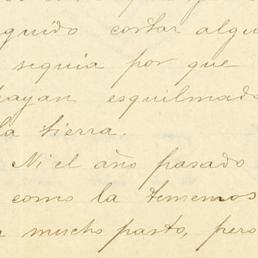 guido cortar algu
sequia por que
hayan esquilmado
la tierra.
Ni el año pasado
como la tenemos
mucho pasto, pero